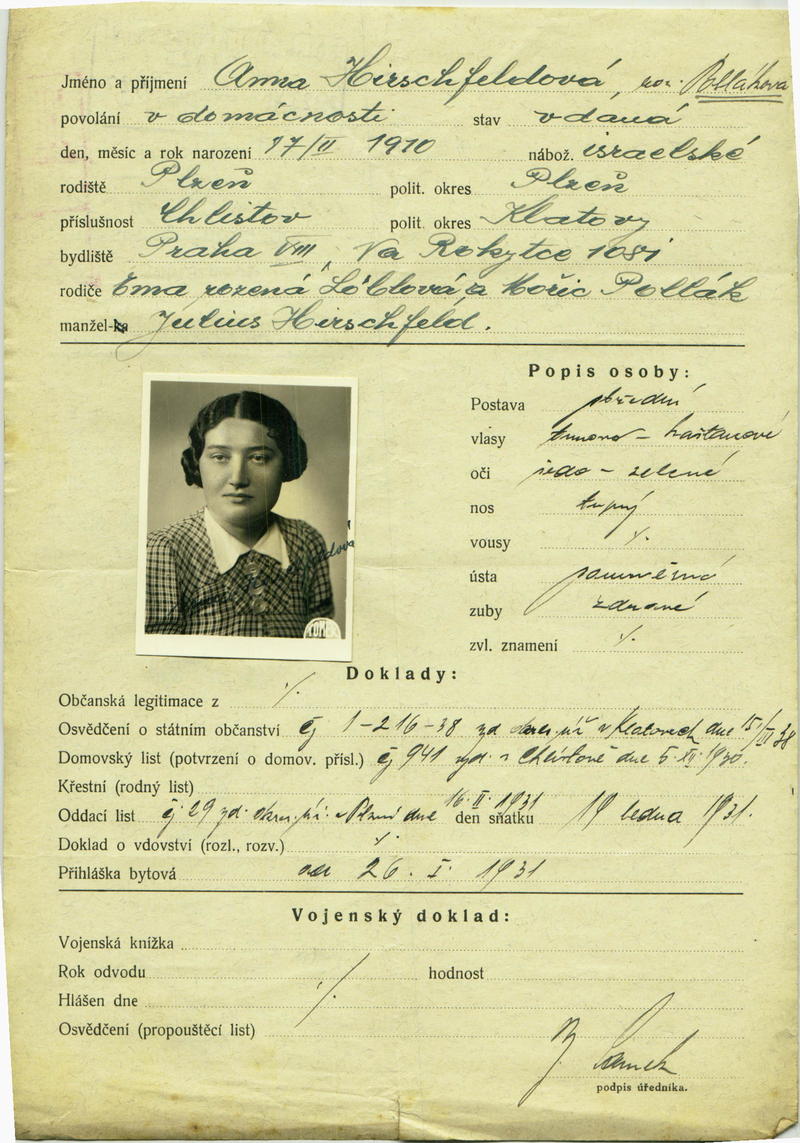 Jméno a příjmení Anna Hirschfeldová, roz. Polláková
povolání v domácnosti stav vdaná
den, měsíc a rok narození 17/II 1910 nábož. israelské
rodiště Plzeň polit. okres Plzeň
příslušnost Chlistov polit. okres Klatovy
bydliště Praha VIII, Na Rokytce 1081
rodiče Ema rozená Löblová a Mořic Pollák
manžel-ka Julius Hirschfeld.
Popis osoby:
Postava střední
vlasy tmavo-kaštanové
oči šedo-zelené
nos tupý
vousy ∕.
ústa souměrná
zuby zdravé
zvl. znamení ∕.
Doklady:
Občanská legitimace z ∕.
Osvědčení o státním občanství čj 1-216-38 vyd. okres. úř. v Klatovech dne 15/III 38
Domovský list (potvrzení o domov. přísl.) čj 941 vyd. v Chlistově dne 5. XII. 1930.
Křestní (rodný list)
Oddací list čj. 29 vyd. okres. úř. v Plzni dne 16. II. 1931 den sňatku 19 ledna 1931.
Doklad o vdovství (rozl., rozv.) ∕.
Přihláška bytová od 26. I. 1931
Vojenský doklad:
Vojenská knížka
Rok odvodu hodnost
Hlášen dne ∕.
Osvědčení (propouštěcí list)
podpis úředníka.